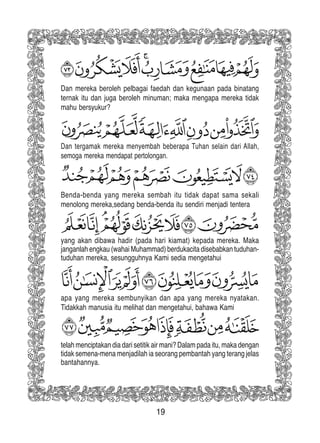 وَلَهُمْ فِيهَا مَنَافِعُ وَمَشَارِبُ ۖ أَفَلَا يَشْكُرُونَ ﴿٧٣﴾
Dan mereka beroleh pelbagai faedah dan kegunaan pada binatang
ternak itu dan juga beroleh minuman; maka mengapa mereka tidak
mahu bersyukur?
وَاتَّخَذُوا مِن دُونِ اللَّهِ آلِهَةً لَّعَلَّهُمْ يُنصَرُونَ
Dan tergamak mereka menyembah beberapa Tuhan selain dari Allah,
semoga mereka mendapat pertolongan.
﴿٧٤﴾ لَا يَسْتَطِيعُونَ نَصْرَهُمْ وَهُمْ لَهُمْ جُندٌ
Benda-benda yang mereka sembah itu tidak dapat sama sekali
menolong mereka,sedang benda-benda itu sendiri menjadi tentera
مُّحْضَرُونَ ﴿٧٥﴾ فَلَا يَحْزُنكَ قَوْلُهُمْ ۘ إِنَّا نَعْلَمُ
yang akan dibawa hadir (pada hari kiamat) kepada mereka. Maka
janganlah engkau (wahai Muhammad) berdukacita disebabkan tuduhan-
tuduhan mereka, sesungguhnya Kami sedia mengetahui
مَا يُسِرُّونَ وَمَا يُعْلِنُونَ ﴿٧٦﴾ أَوَلَمْ يَرَ الْإِنسَانُ أَنَّا
apa yang mereka sembunyikan dan apa yang mereka nyatakan.
Tidakkah manusia itu melihat dan mengetahui, bahawa Kami
خَلَقْنَاهُ مِن نُّطْفَةٍ فَإِذَا هُوَ خَصِيمٌ مُّبِينٌ ﴿٧٧﴾
telah menciptakan dia dari setitik air mani? Dalam pada itu, maka dengan
tidak semena-mena menjadilah ia seorang pembantah yang terang jelas
bantahannya.
19